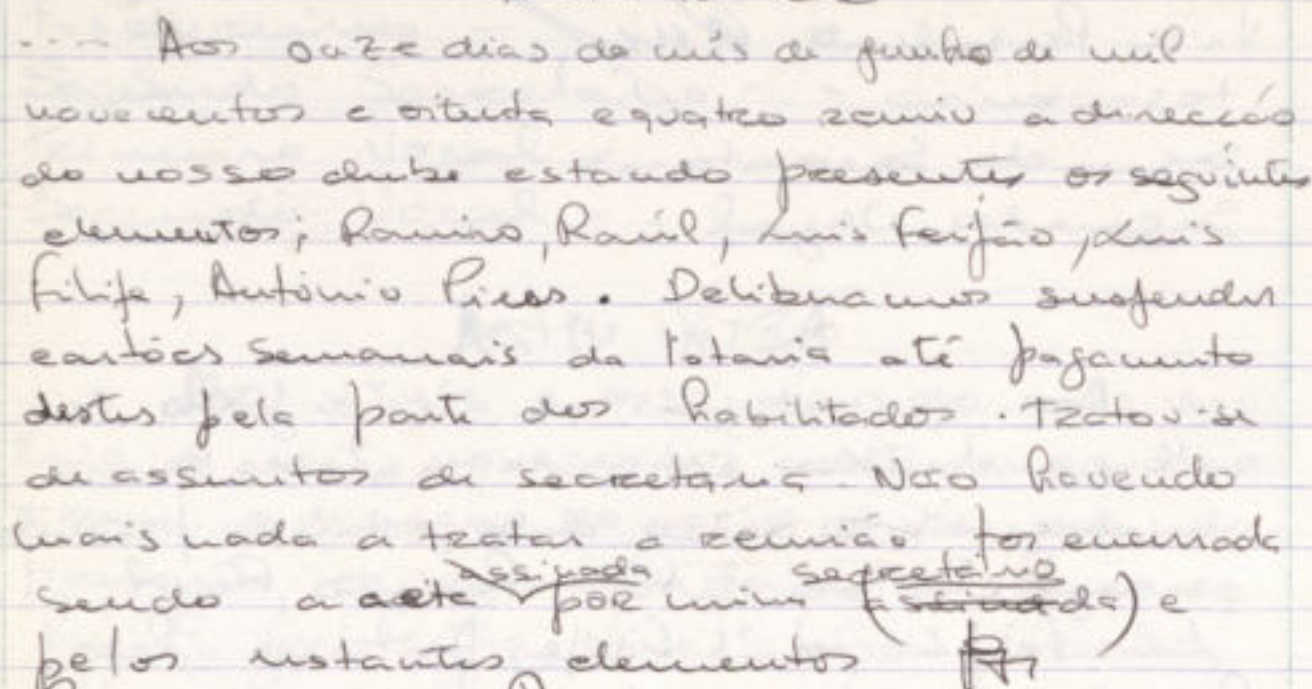 ---- Aos onze dias do mês de junho de mil
novecentos e oitenta e quatro reuniu a direcção
do nosso clube estando presentes os seguintes
elementos; Ramiro, Raúl, Luis Feijão, Luis
Filipe, António Pires. Deliberamos suspender
cartões semanais da lotaria até pagamento
destes pela parte dos habilitados. Tratou-se
de assuntos de secretaria. Não havendo
mais nada a tratar a reunião foi encerrada
assinada secretário
sendo a acta por mim (assinada) e
pelos restantes elementos